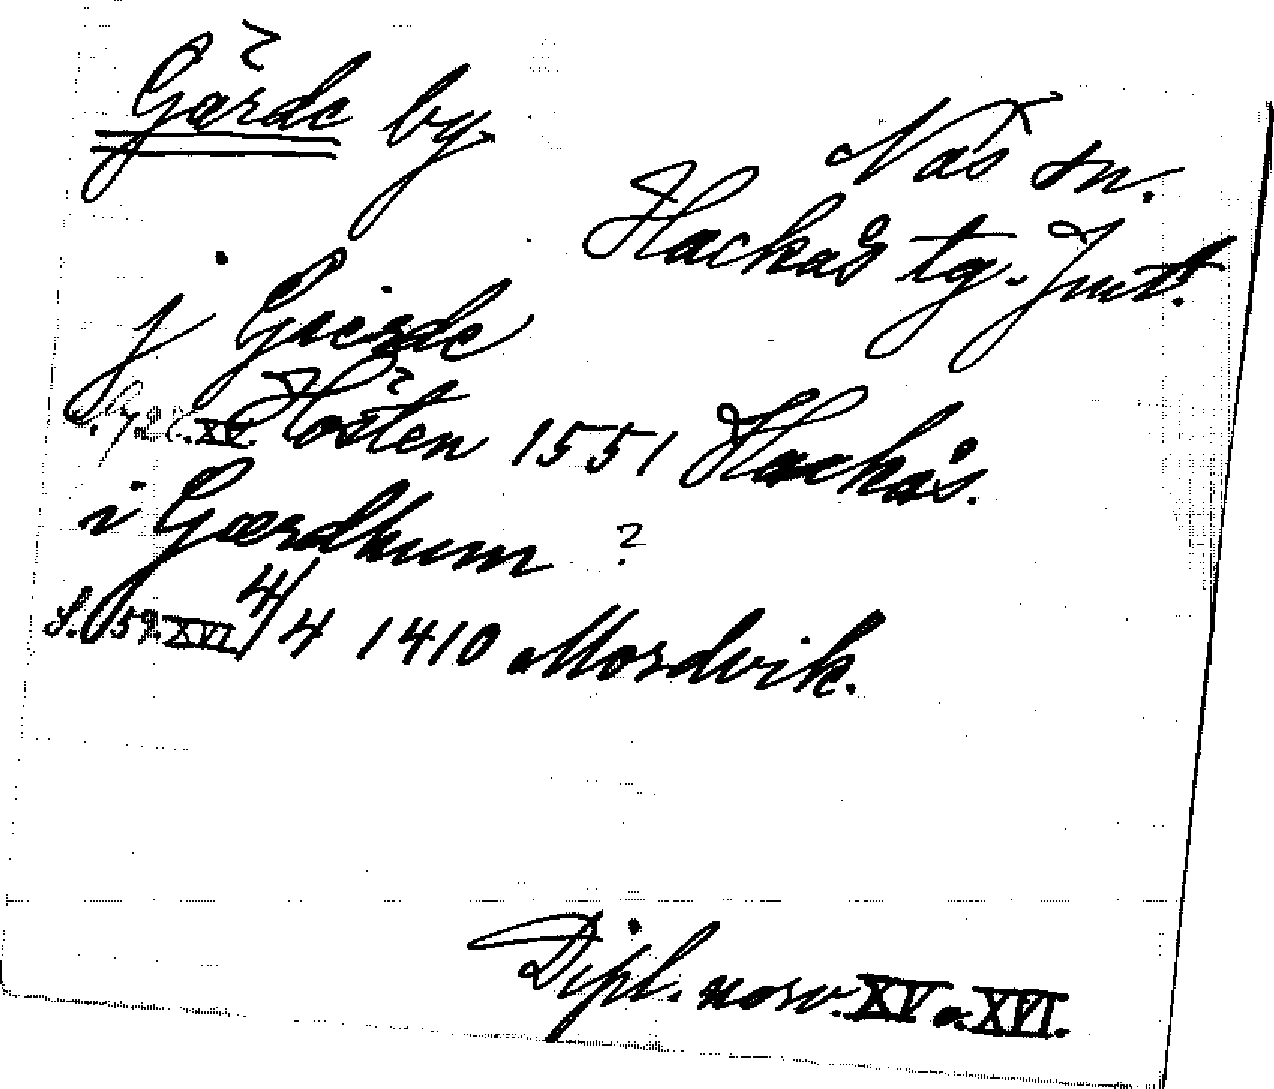 Gärde by.
Näs sn.
Hackås tg. Jmtl.
j Gierde
Hösten 1551 Hackås.
i Gærdhum ?
S. 59. XVI. 4/4 1410 Mordvik.
Dipl. norv. XV o. XVI.